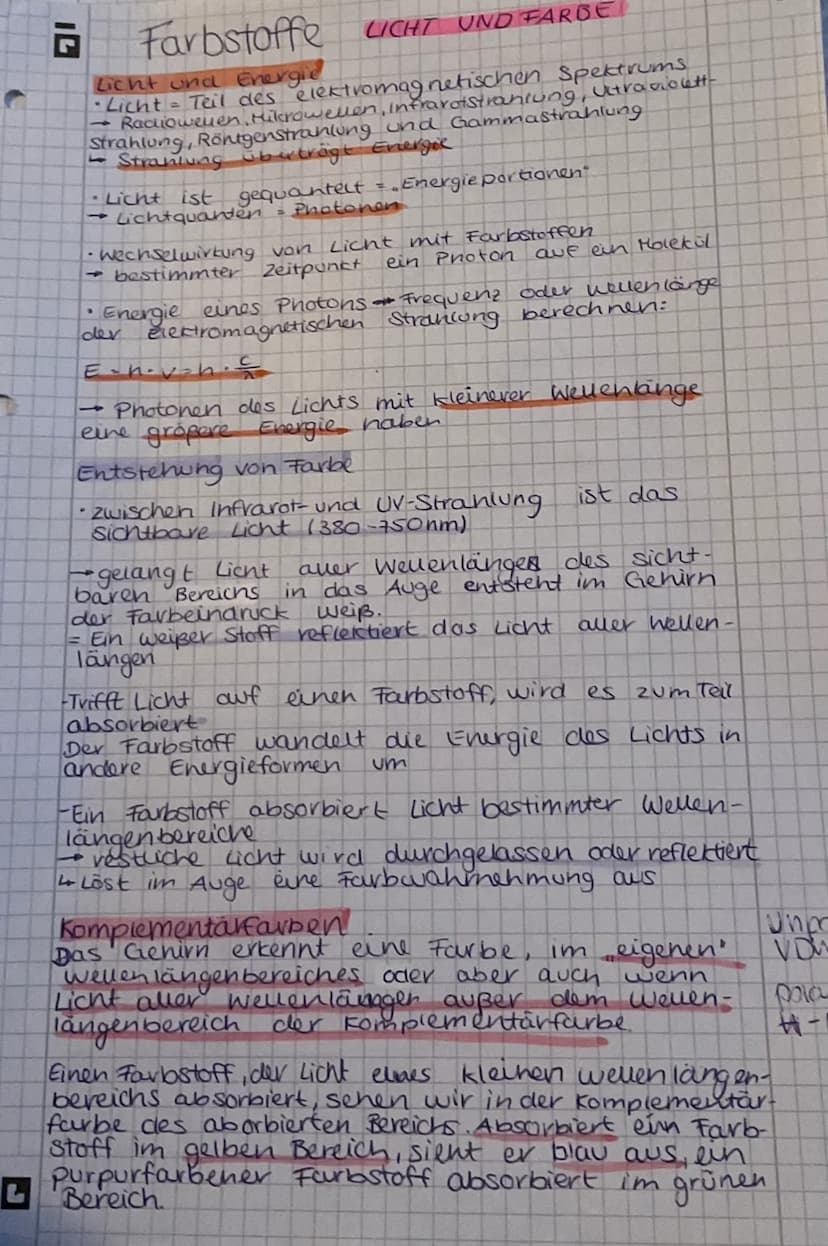 Farbstoffe LICHT UND FARBE
Licht und Energie
· Licht = Teil des elektromagnetischen Spektrums
→ Radiowellen, Mikrowellen, Infrarotstrahlung, Ultraviolett-
strahlung, Röntgenstrahlung und Gammastrahlung
↳ Strahlung überträgt Energie
· Licht ist gequantelt = „Energieportionen"
→ Lichtquanten = Photonen
· Wechselwirkung von Licht mit Farbstoffen
→ bestimmter Zeitpunkt ein Photon auf ein Molekül
· Energie eines Photons → Frequenz oder Wellenlänge
der elektromagnetischen Strahlung berechnen:
E = h · v = h · c/λ
→ Photonen des Lichts mit kleinerer Wellenlänge
eine größere Energie haben
Entstehung von Farbe
· zwischen Infrarot- und UV-Strahlung ist das
sichtbare Licht (380-750nm)
→ gelangt Licht aller Wellenlängen des sicht-
baren Bereichs in das Auge entsteht im Gehirn
der Farbeindruck weiß.
= Ein weißer Stoff reflektiert das Licht aller Wellen-
längen
-Trifft Licht auf einen Farbstoff, wird es zum Teil
absorbiert
Der Farbstoff wandelt die Energie des Lichts in
andere Energieformen um
-Ein Farbstoff absorbiert Licht bestimmter Wellen-
längenbereiche
→ restliche Licht wird durchgelassen oder reflektiert
↳ Löst im Auge eine Farbwahrnehmung aus
Komplementärfarben
Das Gehirn erkennt eine Farbe, im „eigenen"
Wellenlängenbereiches oder aber auch wenn
Licht aller Wellenlängen außer dem Wellen-
längenbereich der Komplementärfarbe
Einen Farbstoff, der Licht eines kleinen Wellenlängen-
bereichs absorbiert, sehen wir in der Komplementär-
farbe des aborbierten Bereichs. Absorbiert ein Farb-
stoff im gelben Bereich, sieht er blau aus, ein
purpurfarbener Farbstoff absorbiert im grünen
Bereich.